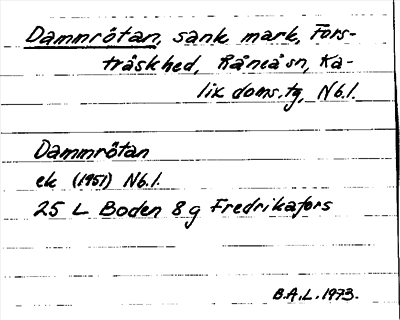 Dammrötan, sank mark, Fors-
träskhed, Råneå sn, Ka-
lix doms.tg, Nb.l.
Dammrötan
ek (1951) Nb.l.
25 L Boden 8g Fredrikafors
B.A.L. 1973.